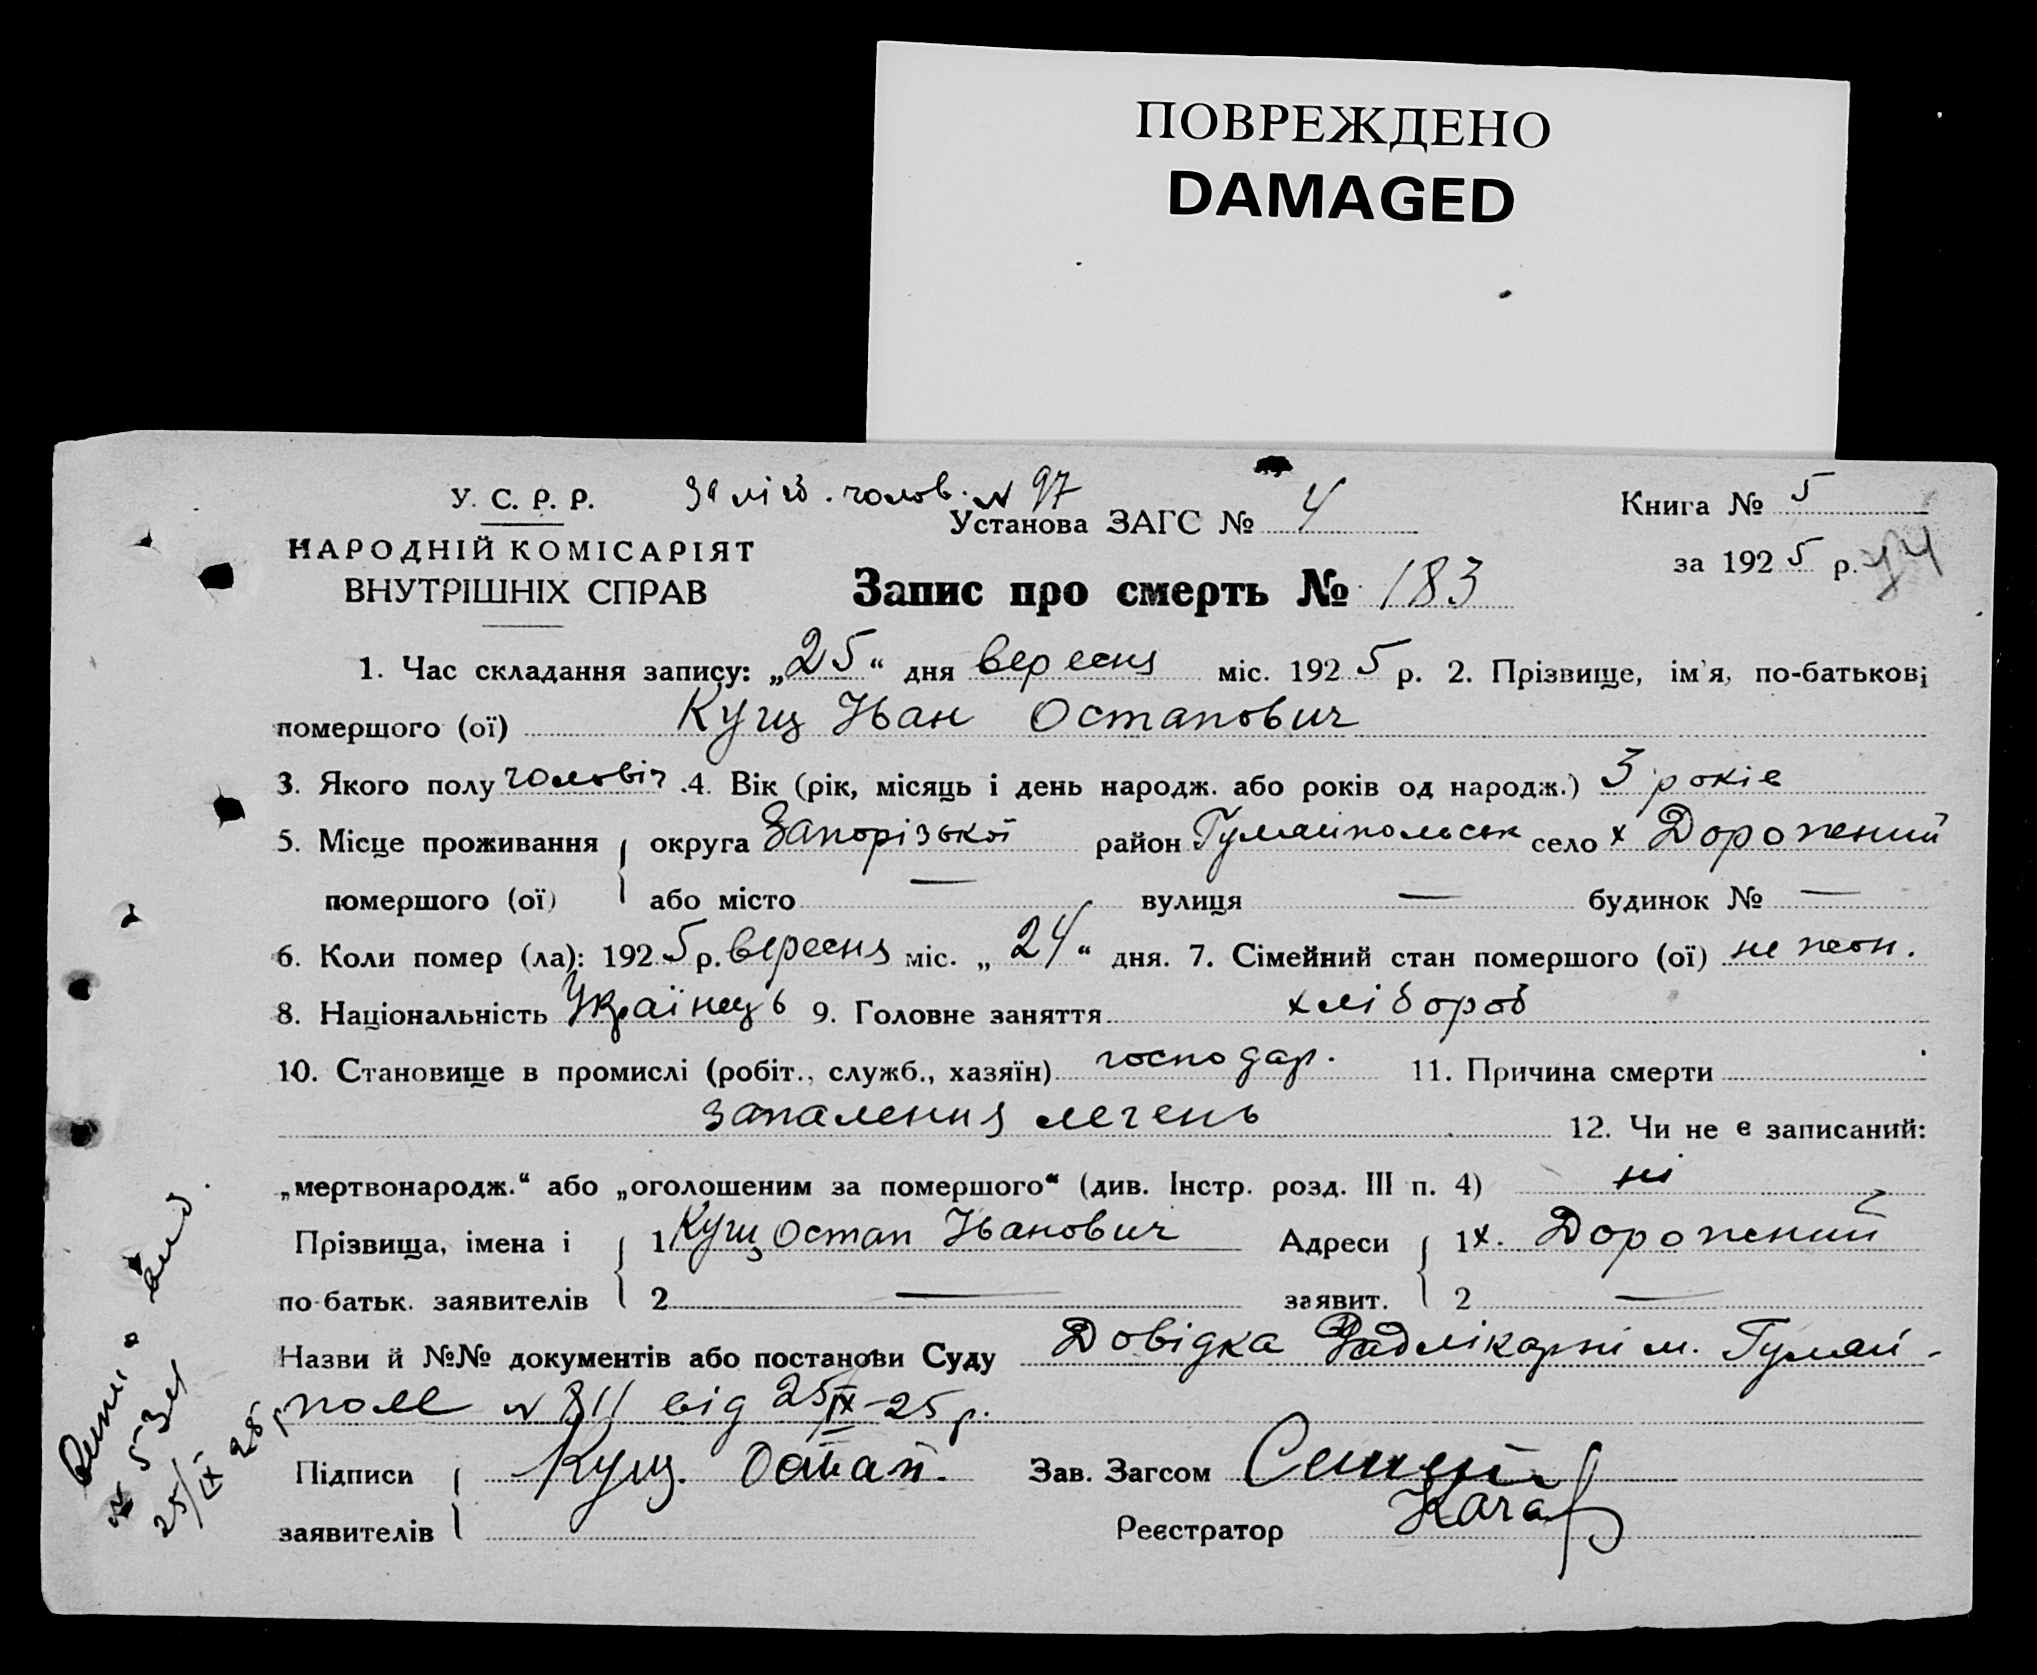 ПОВРЕЖДЕНО
DAMAGED
У. С. Р. Р.
НАРОДНІЙ КОМІСАРІЯТ
ВНУТРІШНІХ СПРАВ
за № 97
Установа ЗАГС № 4
Книга № 5
за 1925 р.
Запис про смерть № 183
1. Час складання запису: „25“ дня вересня міс. 1925 р. 2. Прізвище, ім'я, по-батькові
помершого (ої) Кущ Іван Остапович
3. Якого полу чоловіч. 4. Вік (рік, місяць і день народж. або років од народж.) 3 років
5. Місце проживання округа Запорізької район Гуляйпольськ село х Дорожений
помершого (ої) або місто — вулиця — будинок № —
6. Коли помер (ла): 1925 р. вересня міс. „24“ дня. 7. Сімейний стан помершого (ої) не жон.
8. Національність Українець 9. Головне заняття хлібороб
10. Становище в промислі (робіт., служб., хазяїн) господар. 11. Причина смерти
запалення легень 12. Чи не є записаний:
„мертвонародж.“ або „оголошеним за помершого“ (див. Інстр. розд. III п. 4) ні
Прізвища, імена і 1 Кущ Остап Іванович Адреси 1 х. Дорожений
по-батьк. заявителів 2 — заявит. 2 —
Назви й №№ документів або постанови Суду Довідка Радлікарні м. Гуляй-
поле № 811 від 25/IX-25 р.
Підписи Кущ Остап. Зав. Загсом
заявителів Реєстратор
25/IX 25 р